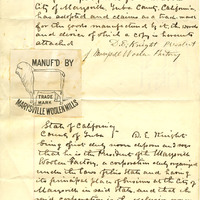 City of Marysville, Yuba County, California
has adopted and claims as a trade mark
for the goods manufactured by it, the words
and device of which a copy is hereunto
attached
D. E. Knight President
of Marysville Woolen Factory
MANUF'D BY
TRADE
MARK
MARYSVILLE WOOLEN MILLS
State of California
County of Yuba
D. E. Knight
being first duly sworn deposes and says
that he is the President of the Marysville
Woolen Factory, a corporation duly organized
under the laws of this State and having
its principal place of business at the City of
Marysville in said State, and that the
said corporation is